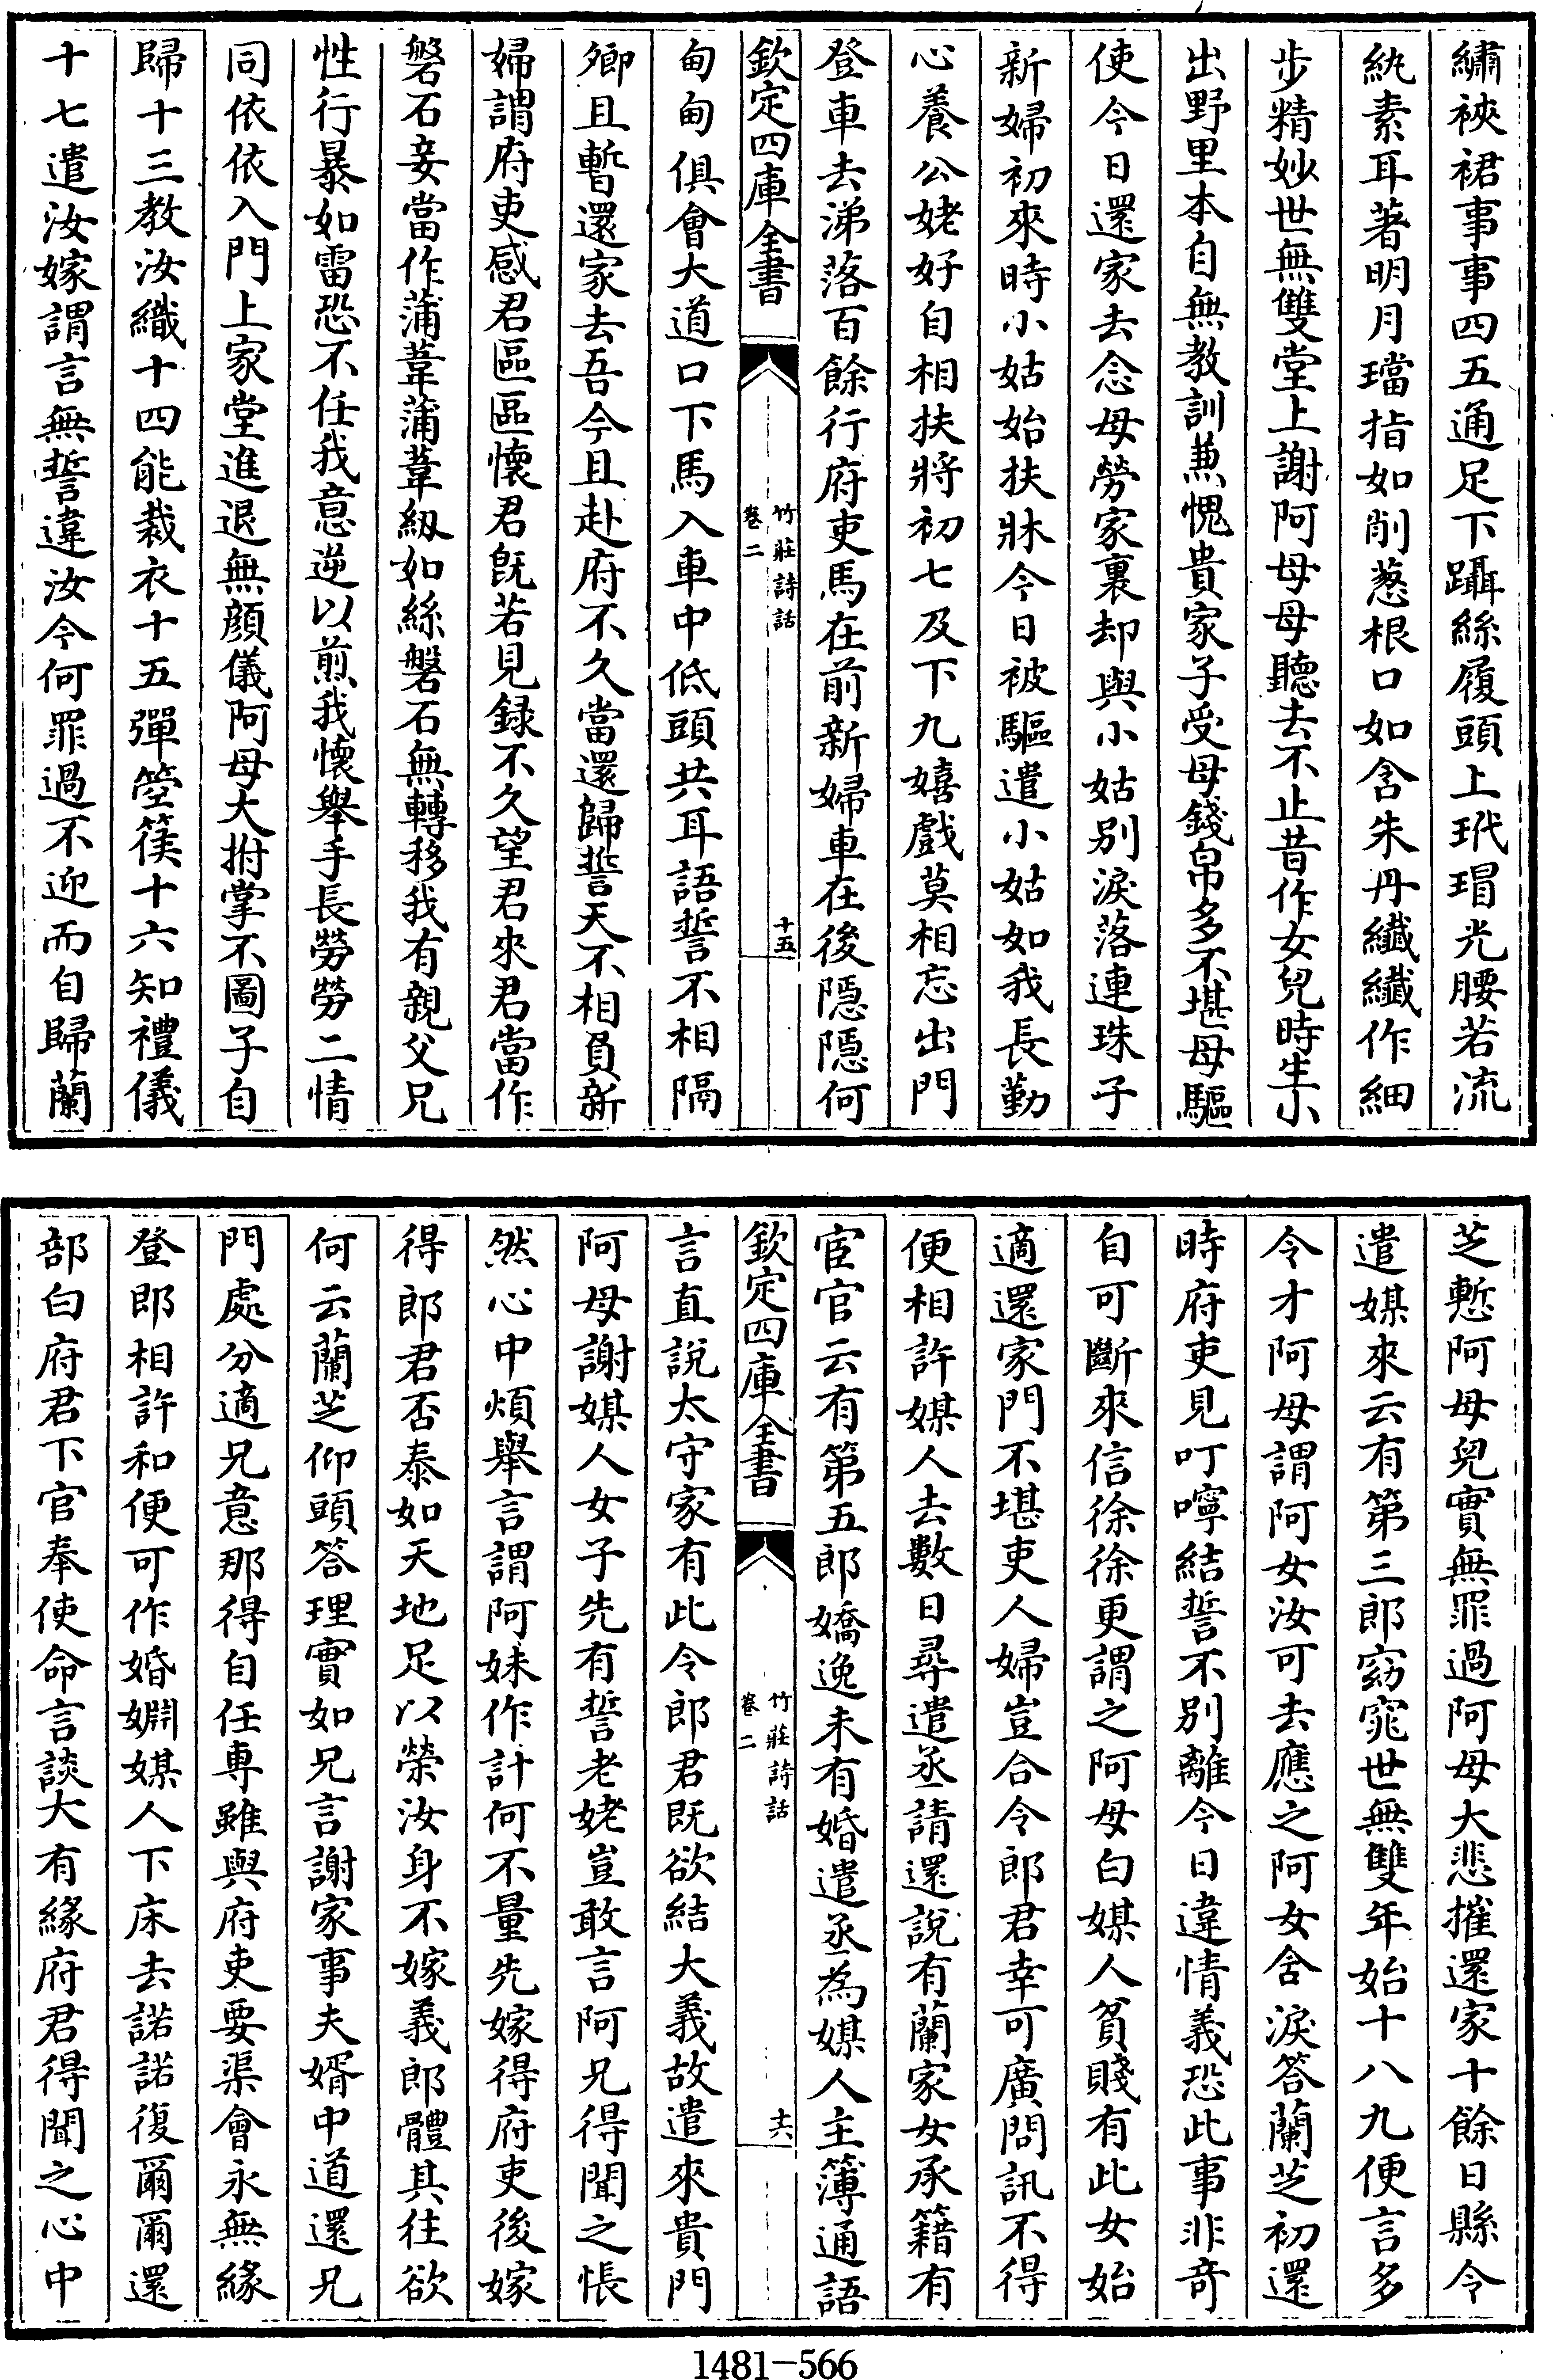 繡裌裙事事四五通足下躡絲履頭上玳瑁光腰若流
紈素耳著明月璫指如削葱根口如含朱丹纖纖作細
步精妙世無雙堂上謝阿母母聽去不止昔作女兒時生小
出野里本自無教訓兼愧貴家子受母錢帛多不堪母驅
使今日還家去念母勞家裏却與小姑别淚落連珠子
新婦初來時小姑始扶牀今日被驅遣小姑如我長勤
心養公姥好自相扶將初七及下九嬉戲莫相忘出門
登車去涕落百餘行府吏馬在前新婦車在後隠隠何
欽定四庫全書
竹莊詩話
卷二
十五
甸甸俱會大道口下馬入車中低頭共耳語誓不相隔
卿且暫還家去吾今且赴府不久當還歸誓天不相負新
婦謂府吏感君區區懷君既若見録不久望君來君當作
磐石妾當作蒲葦蒲葦紉如絲磐石無轉移我有親父兄
性行暴如雷恐不任我意逆以煎我懷舉手長勞勞二情
同依依入門上家堂進退無顔儀阿母大拊掌不圖子自
歸十三教汝織十四能裁衣十五彈箜篌十六知禮儀
十七遣汝嫁謂言無誓違汝今何罪過不迎而自歸蘭
芝慙阿母兒實無罪過阿母大悲摧還家十餘日縣令
遣媒來云有第三郎窈窕世無雙年始十八九便言多
令才阿母謂阿女汝可去應之阿女含淚答蘭芝初還
時府吏見叮嚀結誓不别離今日違情義恐此事非奇
自可斷來信徐徐更謂之阿母白媒人貧賤有此女始
適還家門不堪吏人婦豈合令郎君幸可廣問訊不得
便相許媒人去數日尋遣丞請還說有蘭家女承籍有
宦官云有第五郎嬌逸未有婚遣丞為媒人主簿通語
欽定四庫全書
竹莊詩話
卷二
十六
言直說太守家有此令郎君既欲結大義故遣來貴門
阿母謝媒人女子先有誓老姥豈敢言阿兄得聞之悵
然心中煩舉言謂阿妹作計何不量先嫁得府吏後嫁
得郎君否泰如天地足以榮汝身不嫁義郎體其往欲
何云蘭芝仰頭答理實如兄言謝家事夫婿中道還兄
門處分適兄意那得自任専雖與府吏要渠會永無緣
登即相許和便可作婚姻媒人下床去諾諾復爾爾還
部白府君下官奉使命言談大有緣府君得聞之心中
1481-566